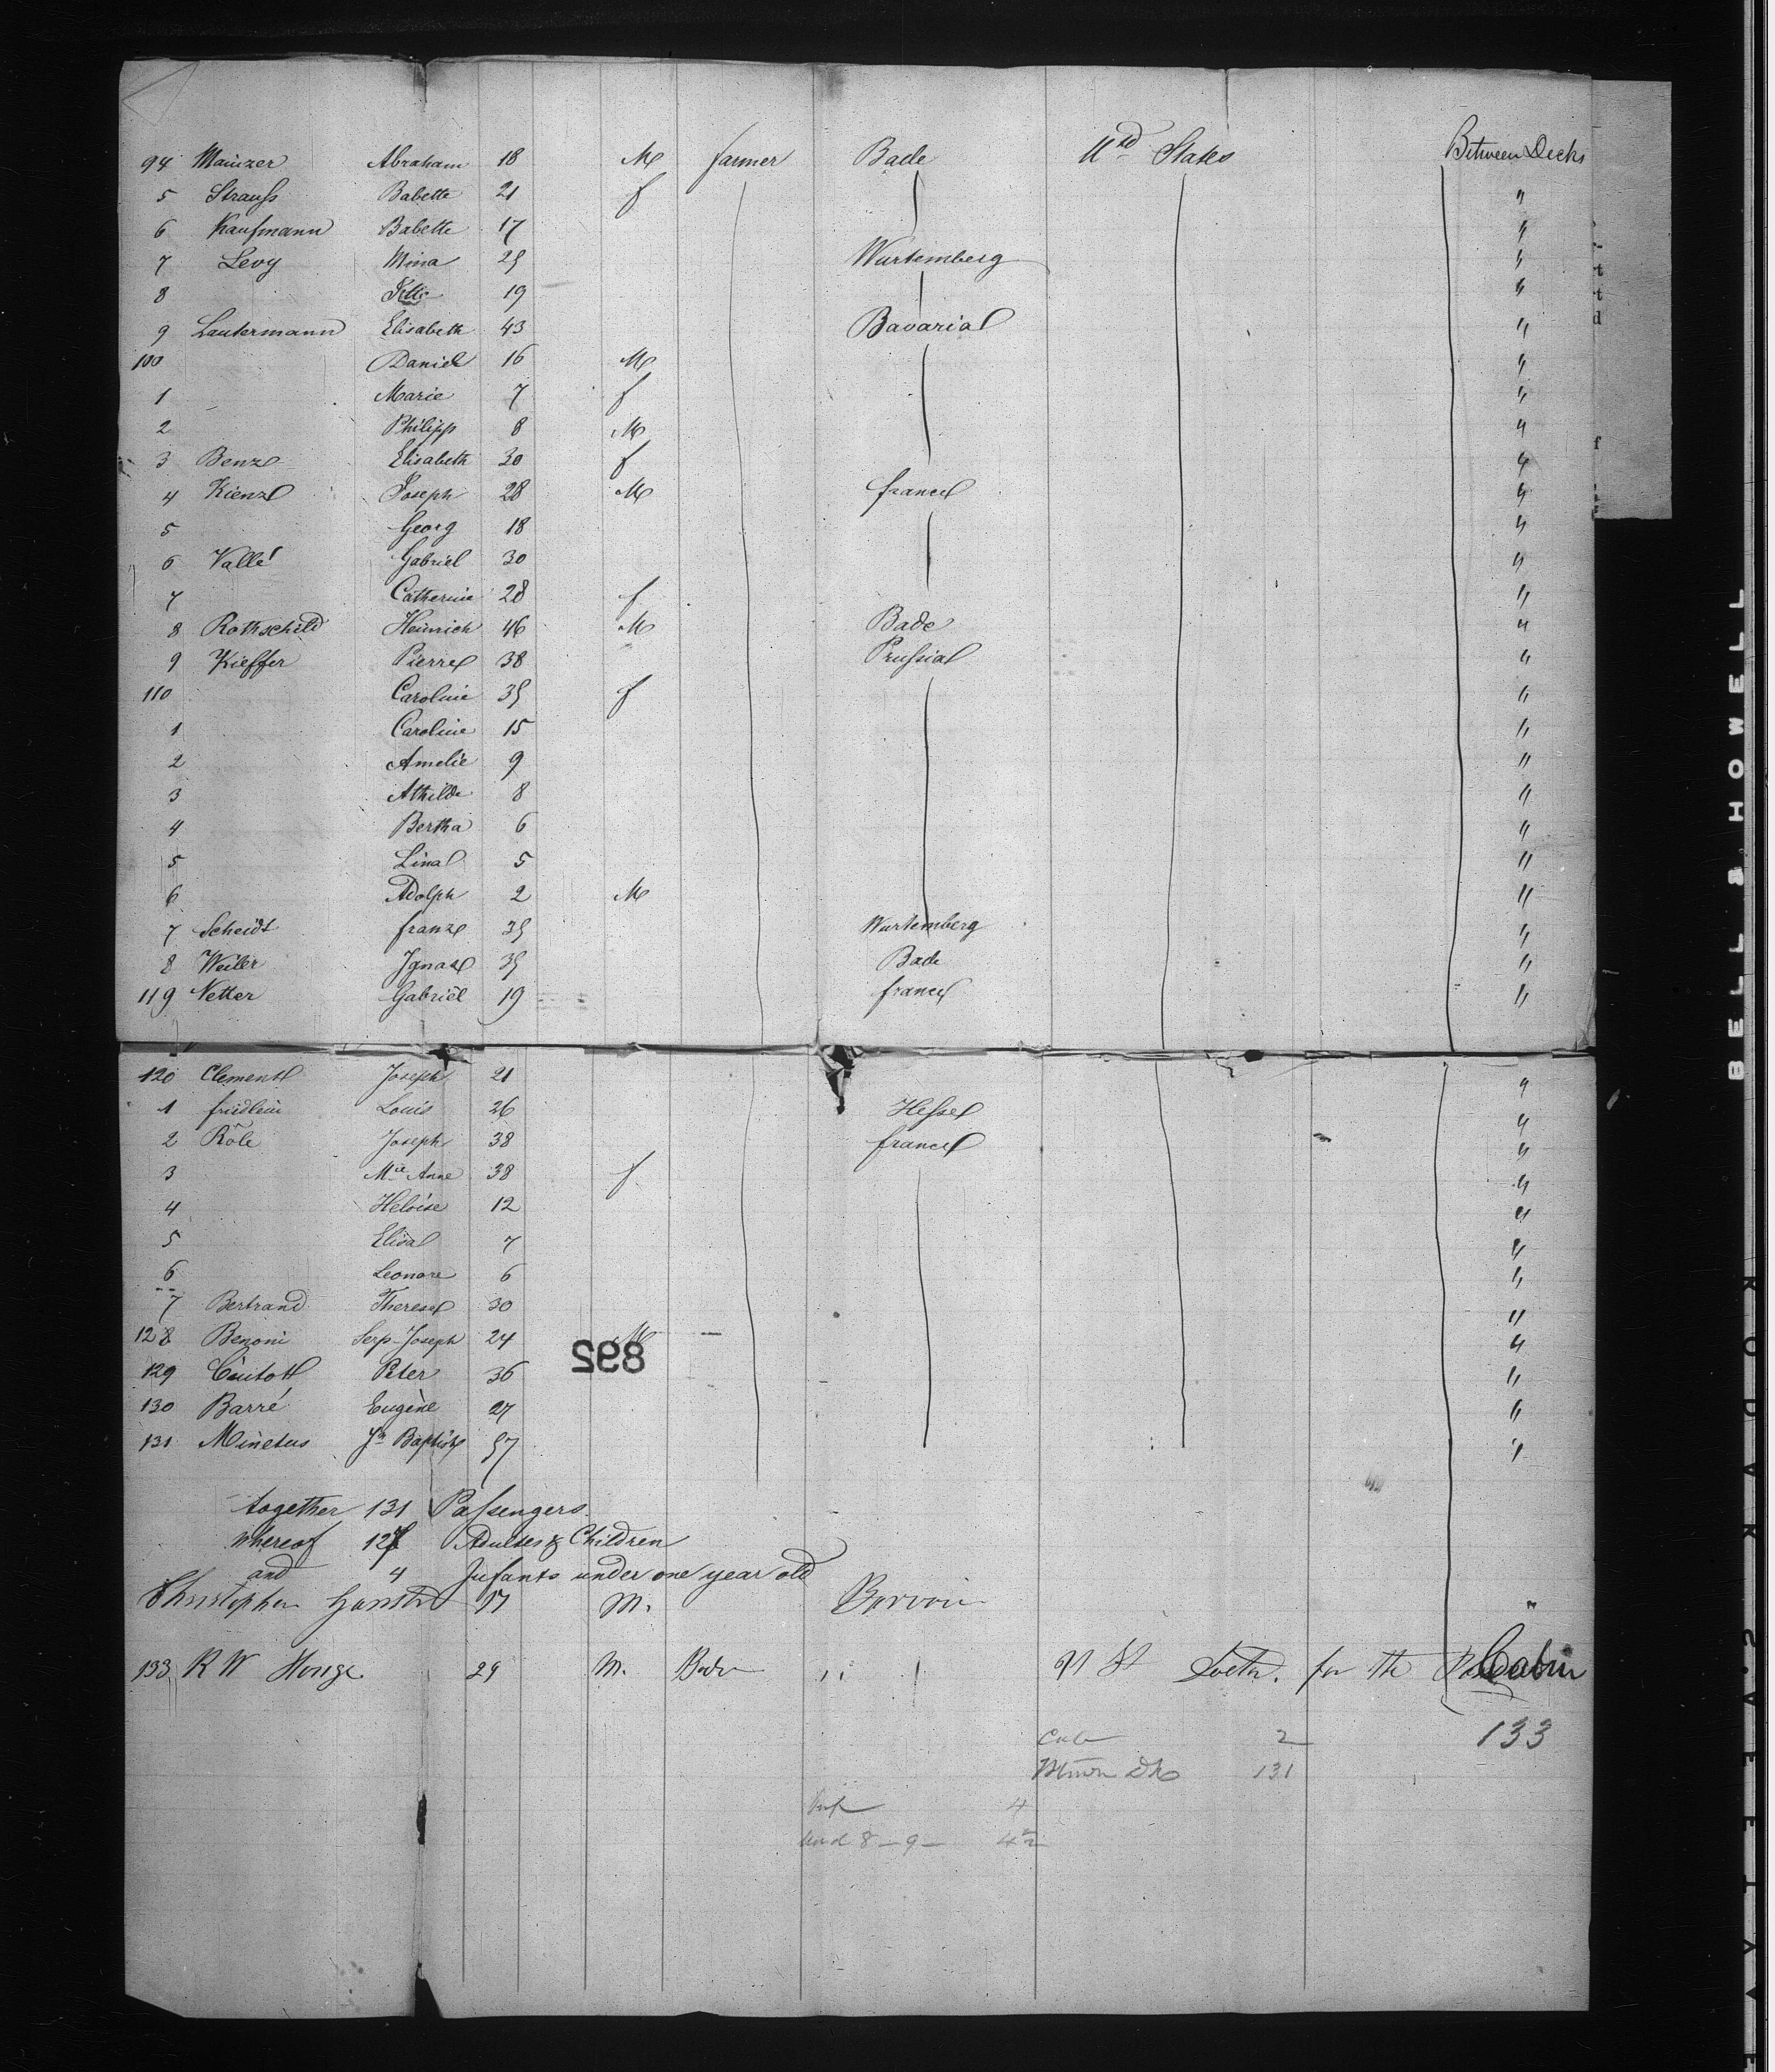 94 Mainzer Abraham 18 M farmer Bade Utd States Between Decks
5 Strauss Babette 21 f "
6 Kaufmann Babette 17 "
7 Levy Mina 25 Wurtemberg "
8 19 "
9 Lautermann Elisabeth 43 Bavaria "
100 Daniel 16 M "
1 Marie 7 f "
2 Philipp 8 M "
3 Benz Elisabeth 30 f "
4 Kienz Joseph 28 M france "
5 Georg 18 "
6 Vallé Gabriel 30 "
7 Catherine 28 f "
8 Rothschild Heinrich 46 M Bade "
9 Kieffer Pierre 38 Prussia "
110 Caroline 35 f "
1 Caroline 15 "
2 Amelie 9 "
3 Athilde 8 "
4 Bertha 6 "
5 Lina 5 "
6 Adolph 2 M "
7 Scheidt franz 35 Wurtemberg "
8 Weiler Ignaz 35 Bade "
119 Netter Gabriel 19 france "
120 Clement Joseph 21 "
1 fridlein Louis 26 Hesse "
2 Role Joseph 38 france "
3 Mie Anne 38 f "
4 Heloise 12 "
5 Elisa 7 "
6 Leonore 6 "
7 Bertrand Therese 30 "
128 Benoni Serp. Joseph 24 M "
892
129 Peter 36 "
130 Barré Eugène 27 "
131 Minetus Jn Baptiste 57 "
together 131 Passengers
whereof 127 Adultes & Children
and 4 Infants under one year old
Christopher 17 M. "
133 R W 29 M. for the Cabin
133
2
131
4
8 - 9 -
BELL & HOWELL
KODAK S.A.FETY